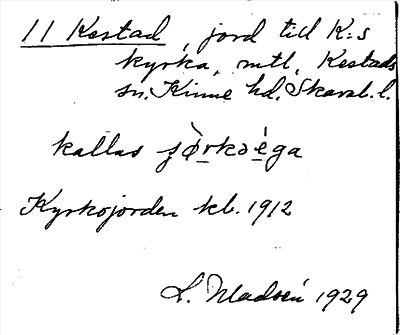 11 Kestad, jord till K:s
kyrka, mtl, Kestads
sn. Kinne hd. Skarab. l.
kallas
Kyrkojorden kb. 1912
L. Madsén 1929